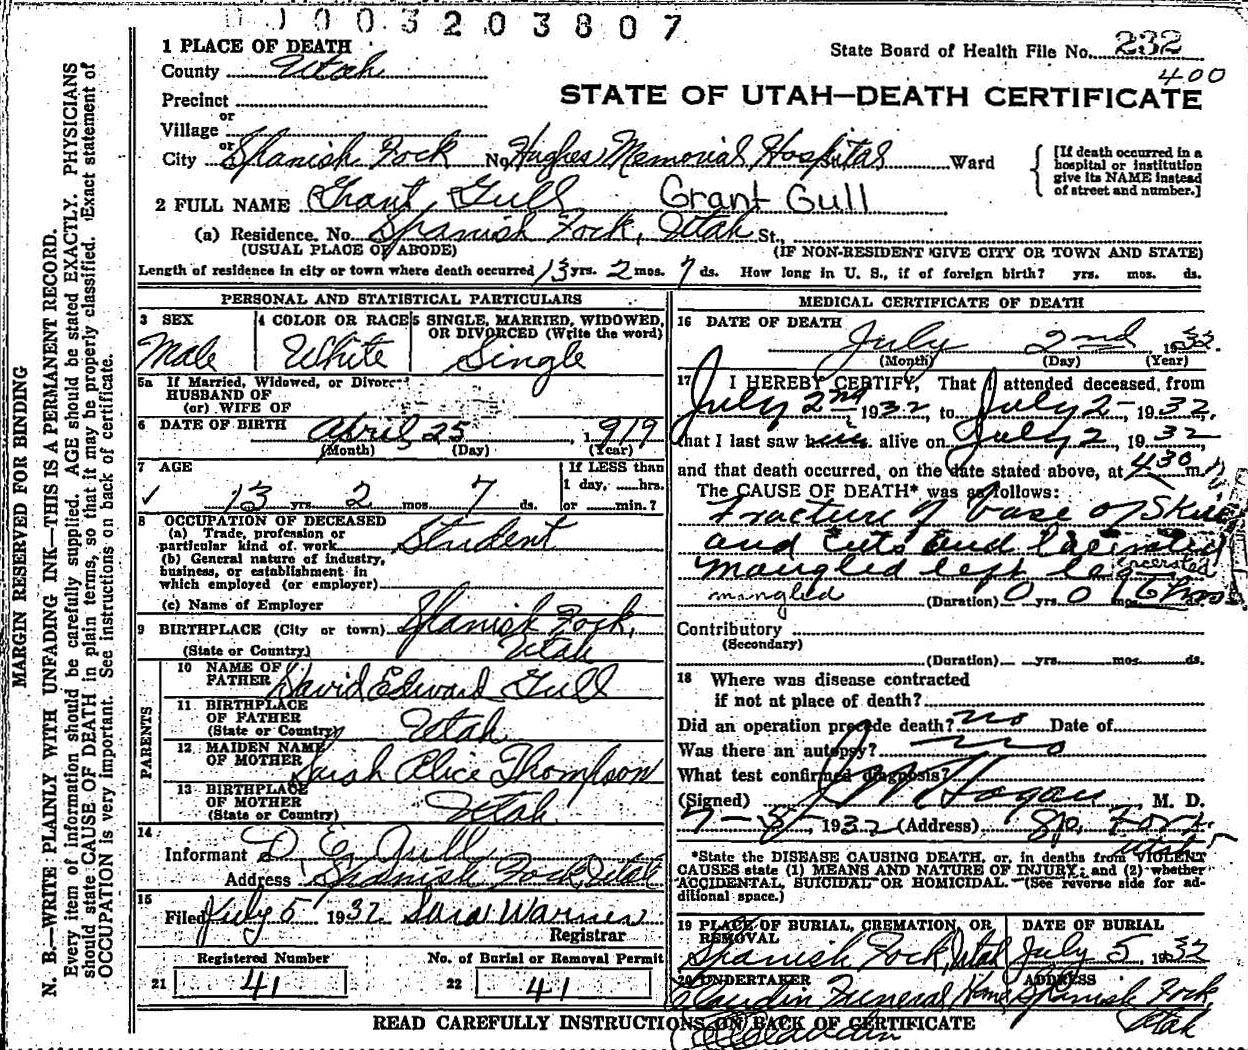 0 0 3 2 0 3 8 0 7
1 PLACE OF DEATH
State Board of Health File No. 232
County Utah
400
Precinct
STATE OF UTAH—DEATH CERTIFICATE
or
Village
or
City Spanish Fork No. Hughes Memorial Hospital Ward
[If death occurred in a hospital or institution give its NAME instead of street and number.]
2 FULL NAME Grant Gull Grant Gull
(a) Residence. No. Spanish Fork, Utah St.,
(USUAL PLACE OF ABODE) (IF NON-RESIDENT GIVE CITY OR TOWN AND STATE)
Length of residence in city or town where death occurred 13 yrs. 2 mos. 7 ds. How long in U. S., if of foreign birth? yrs. mos. ds.
PERSONAL AND STATISTICAL PARTICULARS
3 SEX 4 COLOR OR RACE 5 SINGLE, MARRIED, WIDOWED,
OR DIVORCED (Write the word)
Male White Single
5a If Married, Widowed, or Divorced
HUSBAND OF
(or) WIFE OF
6 DATE OF BIRTH April 25, 1919
(Month) (Day) (Year)
7 AGE If LESS than
1 day, hrs.
13 yrs. 2 mos. 7 ds. or min.?
8 OCCUPATION OF DECEASED
(a) Trade, profession or
particular kind of work Student
(b) General nature of industry,
business, or establishment in
which employed (or employer)
(c) Name of Employer
9 BIRTHPLACE (City or town) Spanish Fork,
(State or Country) Utah
PARENTS
10 NAME OF
FATHER David Edward Gull
11 BIRTHPLACE
OF FATHER
(State or Country) Utah
12 MAIDEN NAME
OF MOTHER Sarah Alice Thompson
13 BIRTHPLACE
OF MOTHER
(State or Country) Utah
14
Informant D E Gull
Address Spanish Fork, Utah
15
Filed July 5 1932 Sara Warner
Registrar
Registered Number No. of Burial or Removal Permit
21 41 22 41
MEDICAL CERTIFICATE OF DEATH
16 DATE OF DEATH
July 2nd 1932.
(Month) (Day) (Year)
17 I HEREBY CERTIFY, That I attended deceased from
July 2nd 1932, to July 2 - 1932.
that I last saw him alive on July 2, 1932
and that death occurred, on the date stated above, at 4 30 m.
The CAUSE OF DEATH* was as follows:
Fracture of base of Skull
and cuts and lacerated
mangled left leg
mangled (Duration) 0 yrs. 0 mos. ds.
Contributory
(Secondary)
(Duration) yrs. mos. ds.
18 Where was disease contracted
if not at place of death?
Did an operation precede death? no Date of
Was there an autopsy? no
What test confirmed diagnosis?
(Signed) J W Hagan, M. D.
1932 (Address) Sp. Fork
Utah
*State the DISEASE CAUSING DEATH, or, in deaths from VIOLENT
CAUSES state (1) MEANS AND NATURE OF INJURY; and (2) whether
ACCIDENTAL, SUICIDAL OR HOMICIDAL. (See reverse side for ad-
ditional space.)
19 PLACE OF BURIAL, CREMATION, OR DATE OF BURIAL
REMOVAL
Spanish Fork, Utah July 5 1932
20 UNDERTAKER ADDRESS
Claudin Funeral Home Spanish Fork,
Utah
READ CAREFULLY INSTRUCTIONS ON BACK OF CERTIFICATE
MARGIN RESERVED FOR BINDING
N. B.—WRITE PLAINLY WITH UNFADING INK—THIS IS A PERMANENT RECORD.
Every item of information should be carefully supplied. AGE should be stated EXACTLY. PHYSICIANS
should state CAUSE OF DEATH in plain terms, so that it may be properly classified. Exact statement of
OCCUPATION is very important. See instructions on back of certificate.